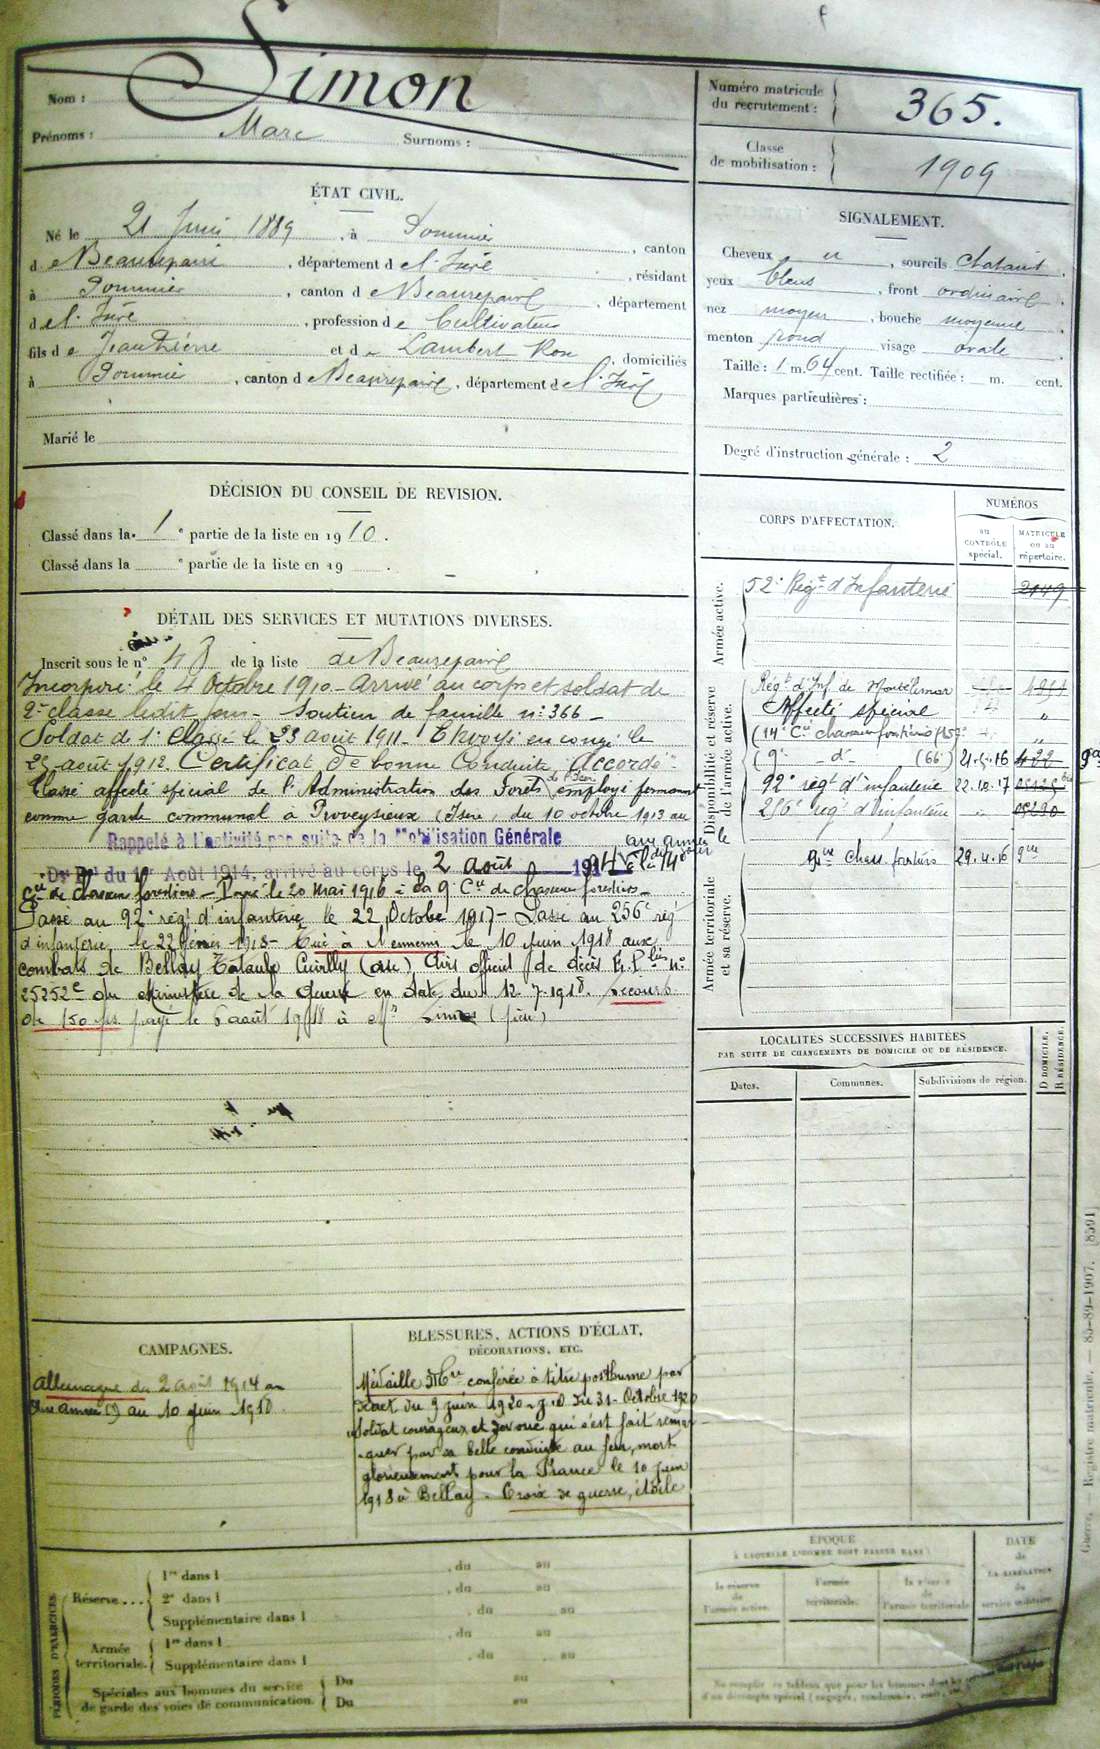 Nom : Simon
Prénoms : Marc Surnoms :
Numéro matricule du recrutement : 365.
Classe de mobilisation : 1909
ÉTAT CIVIL.
Né le 21 Juin 1889, à Pommier, canton
de Beaurepaire, département de l'Isère, résidant
à Pommier, canton de Beaurepaire, département
de l'Isère, profession de Cultivateur
fils de Jean Pierre et de Lambert Rose, domiciliés
à Pommier, canton de Beaurepaire, département de l'Isère
Marié le
SIGNALEMENT.
Cheveux et, sourcils chatains.
yeux bleus, front ordinaire.
nez moyen, bouche moyenne.
menton rond visage ovale.
Taille : 1 m. 64 cent. Taille rectifiée : m. cent.
Marques particulières :
Degré d'instruction générale : 2
DÉCISION DU CONSEIL DE REVISION.
Classé dans la 1e partie de la liste en 1910.
Classé dans la e partie de la liste en 19 .
DÉTAIL DES SERVICES ET MUTATIONS DIVERSES.
Inscrit sous le n° 43 de la liste de Beaurepaire
Incorporé le 4 Octobre 1910 - Arrivé au corps et soldat de
2e classe ledit jour - Soutien de famille n: 366 -
Soldat de 1e classe le 23 août 1911 - Envoyé en congé le
25 août 1912. Certificat de bonne conduite Accordé -
Classé affecté spécial de l'Administration des Forêts de l'Isère employé
comme garde communal à Proveysieux (Isère) du 10 octobre 1913 au
Rappelé à l'activité par suite de la Mobilisation Générale
Dt Pel du 1er Août 1914, arrivé au corps le 2 août 1914
Cie de chasseurs forestiers - Passé le 20 mai 1916 à la 9e Cie de chasseurs forestiers -
Passé au 92e régt d'infanterie le 22 Octobre 1917 - Passé au 256e régt
d'infanterie le 22 février 1918 - Tué à l'ennemi le 10 Juin 1918 aux
combats de Bellay Cuvilly (Oise) Avis officiel de décès n°
25252 du Ministère de la Guerre en date du 12-7-1918. Secours
de 150 frs payé le 6 août 1918 à Mr Simon (père)
CORPS D'AFFECTATION.
NUMÉROS
au CONTRÔLE spécial.
MATRICULE ou au répertoire.
Armée active.
52e Régt d'Infanterie 2049
Disponibilité et réserve de l'armée active.
Régt d'Inf. de Montélimar
Affecté spécial "
(14e Cie chasseurs forestiers
(9e - d° - (66e) 422
92e régt d'infanterie 22.10.17
256e régt d'infanterie
Armée territoriale et sa réserve.
9me Chass. forestiers 29.4.16 9me
LOCALITÉS SUCCESSIVES HABITÉES
PAR SUITE DE CHANGEMENTS DE DOMICILE OU DE RÉSIDENCE.
Dates.
Communes.
Subdivisions de région.
D DOMICILE.
R RÉSIDENCE.
CAMPAGNES.
Allemagne du 2 août 1914 au
au 10 juin 1918
BLESSURES, ACTIONS D'ÉCLAT,
DÉCORATIONS, ETC.
Médaille Mre conférée à titre posthume par
décret du 9 juin 1920 - J.O du 31 Octobre 1920
Soldat courageux et dévoué qui s'est fait remar-
quer par sa belle conduite au feu, mort
glorieusement pour la France le 10 juin
1918 à Bellay - Croix de guerre, étoile
PÉRIODES D'EXERCICES
Réserve...
1re dans l , du au
2e dans l , du au
Supplémentaire dans l , du au
Armée territoriale.
1re dans l , du au
Supplémentaire dans l , du au
Spéciales aux hommes du service de garde des voies de communication.
Du au
Du au
ÉPOQUE
À LAQUELLE L'HOMME DOIT PASSER DANS :
la réserve de l'armée active.
l'armée territoriale.
la réserve de l'armée territoriale.
DATE de LA LIBÉRATION du service militaire.
Guerre. — Registre matricule. — 85-89-1907. [8501]